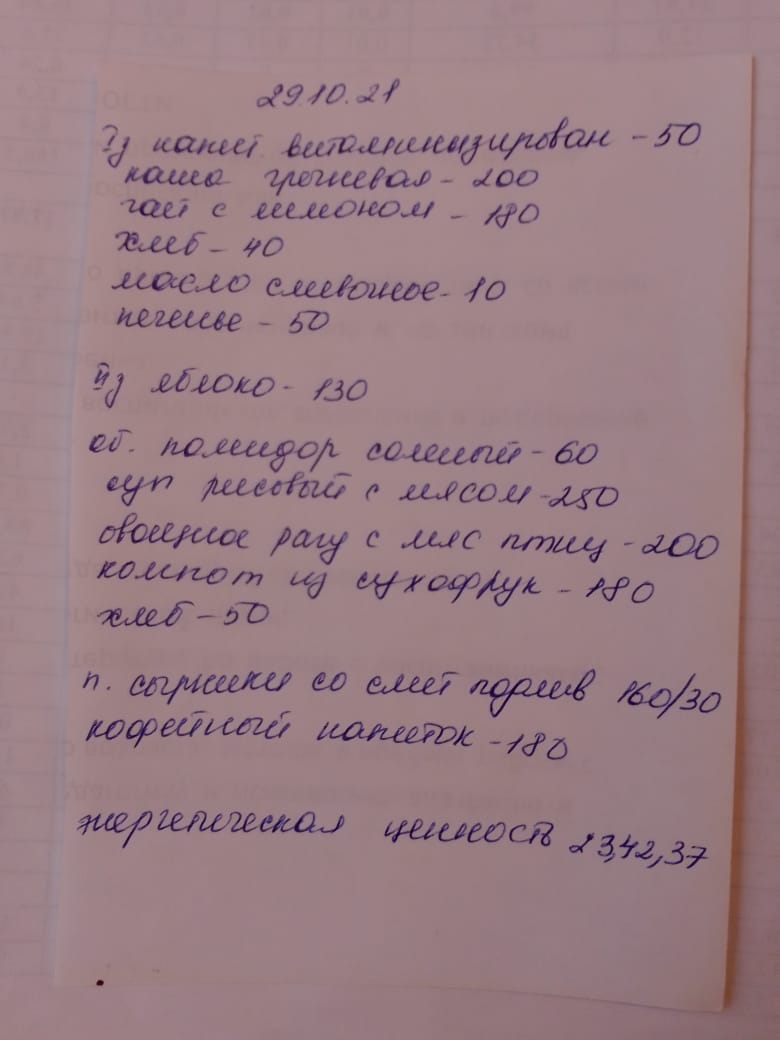 29.10.21
Iз напит. витаминизирован - 50
каша гречневая - 200
чай с лимоном - 180
хлеб - 40
масло сливочное - 10
печенье - 50
IIз яблоко - 130
об. помидор соленый - 60
суп рисовый с мясом - 250
овощное рагу с мяс птиц - 200
компот из сухофрук - 180
хлеб - 50
п. сырники со смет подлив 160/30
кофейный напиток - 180
энергетическая ценность 23,42,37